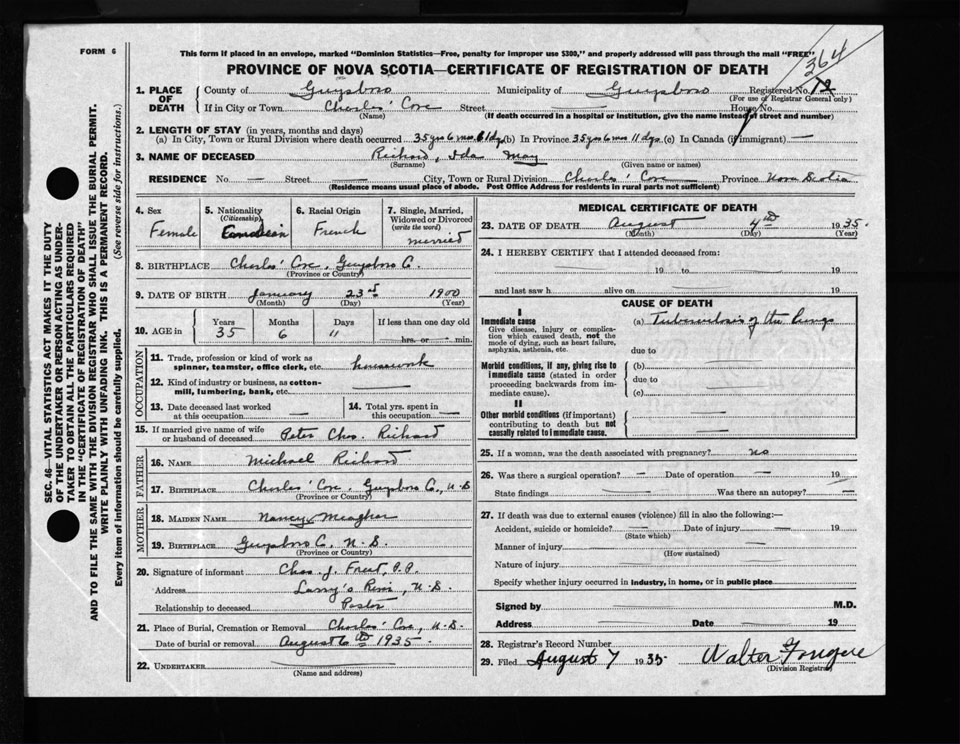 FORM 6
This form if placed in an envelope, marked "Dominion Statistics—Free, penalty for improper use $300," and properly addressed will pass through the mail "FREE"
364
PROVINCE OF NOVA SCOTIA—CERTIFICATE OF REGISTRATION OF DEATH
1. PLACE OF DEATH
County of Guysboro Municipality of Guysboro Registered No. 12
(For use of Registrar General only)
If in City or Town Charles' Cove Street House No.
(Name) (If death occurred in a hospital or institution, give the name instead of street and number)
2. LENGTH OF STAY (in years, months and days)
(a) In City, Town or Rural Division where death occurred 35 yrs 6 mos 11 dys (b) In Province 35 yrs 6 mos 11 dys. (c) In Canada (if immigrant) —
3. NAME OF DECEASED Richard, Ida May
(Surname) (Given name or names)
RESIDENCE No — Street City, Town or Rural Division Charles' Cove Province Nova Scotia
(Residence means usual place of abode. Post Office Address for residents in rural parts not sufficient)
4. Sex Female
5. Nationality (Citizenship) Canadian
6. Racial Origin French
7. Single, Married, Widowed or Divorced (write the word) married
8. BIRTHPLACE Charles' Cove, Guysboro Co.
(Province or Country)
9. DATE OF BIRTH January 23rd 1900
(Month) (Day) (Year)
10. AGE in Years 35 Months 6 Days 11 If less than one day old hrs. or min.
OCCUPATION
11. Trade, profession or kind of work as spinner, teamster, office clerk, etc. housework
12. Kind of industry or business, as cotton-mill, lumbering, bank, etc.
13. Date deceased last worked at this occupation
14. Total yrs. spent in this occupation
15. If married give name of wife or husband of deceased Peter Chas. Richard
FATHER
16. NAME Michael Richard
17. BIRTHPLACE Charles' Cove, Guysboro Co., N.S
(Province or Country)
MOTHER
18. MAIDEN NAME Nancy Meagher
19. BIRTHPLACE Guysboro Co. N.S.
(Province or Country)
20. Signature of informant Chas. J. P.P.
Address Larry's River, N.S.
Relationship to deceased Pastor
21. Place of Burial, Cremation or Removal Charles' Cove, N.S.
Date of burial or removal August 6th 1935
22. UNDERTAKER
(Name and address)
MEDICAL CERTIFICATE OF DEATH
23. DATE OF DEATH August 4th 1935.
(Month) (Day) (Year)
24. I HEREBY CERTIFY that I attended deceased from:
19 to 19
and last saw h alive on 19
CAUSE OF DEATH
I
Immediate cause
Give disease, injury or complication which caused death, not the mode of dying, such as heart failure, asphyxia, asthenia, etc.
(a) Tuberculosis of the lungs
due to
Morbid conditions, if any, giving rise to immediate cause (stated in order proceeding backwards from immediate cause).
(b)
due to
(c)
II
Other morbid conditions (if important) contributing to death but not causally related to immediate cause.
25. If a woman, was the death associated with pregnancy? no
26. Was there a surgical operation? — Date of operation — 19
State findings Was there an autopsy? —
27. If death was due to external causes (violence) fill in also the following:—
Accident, suicide or homicide? — Date of injury — 19
(State which)
Manner of injury
(How sustained)
Nature of injury
Specify whether injury occurred in industry, in home, or in public place
Signed by M.D.
Address Date 19
28. Registrar's Record Number
29. Filed August 7 1935. Walter Fougere
(Division Registrar)
SEC. 46—VITAL STATISTICS ACT MAKES IT THE DUTY
OF THE UNDERTAKER OR PERSON ACTING AS UNDER-
TAKER TO OBTAIN ALL THE PARTICULARS REQUIRED
IN THE "CERTIFICATE OF REGISTRATION OF DEATH"
AND TO FILE THE SAME WITH THE DIVISION REGISTRAR WHO SHALL ISSUE THE BURIAL PERMIT.
WRITE PLAINLY WITH UNFADING INK. THIS IS A PERMANENT RECORD.
Every item of information should be carefully supplied. (See reverse side for instructions.)